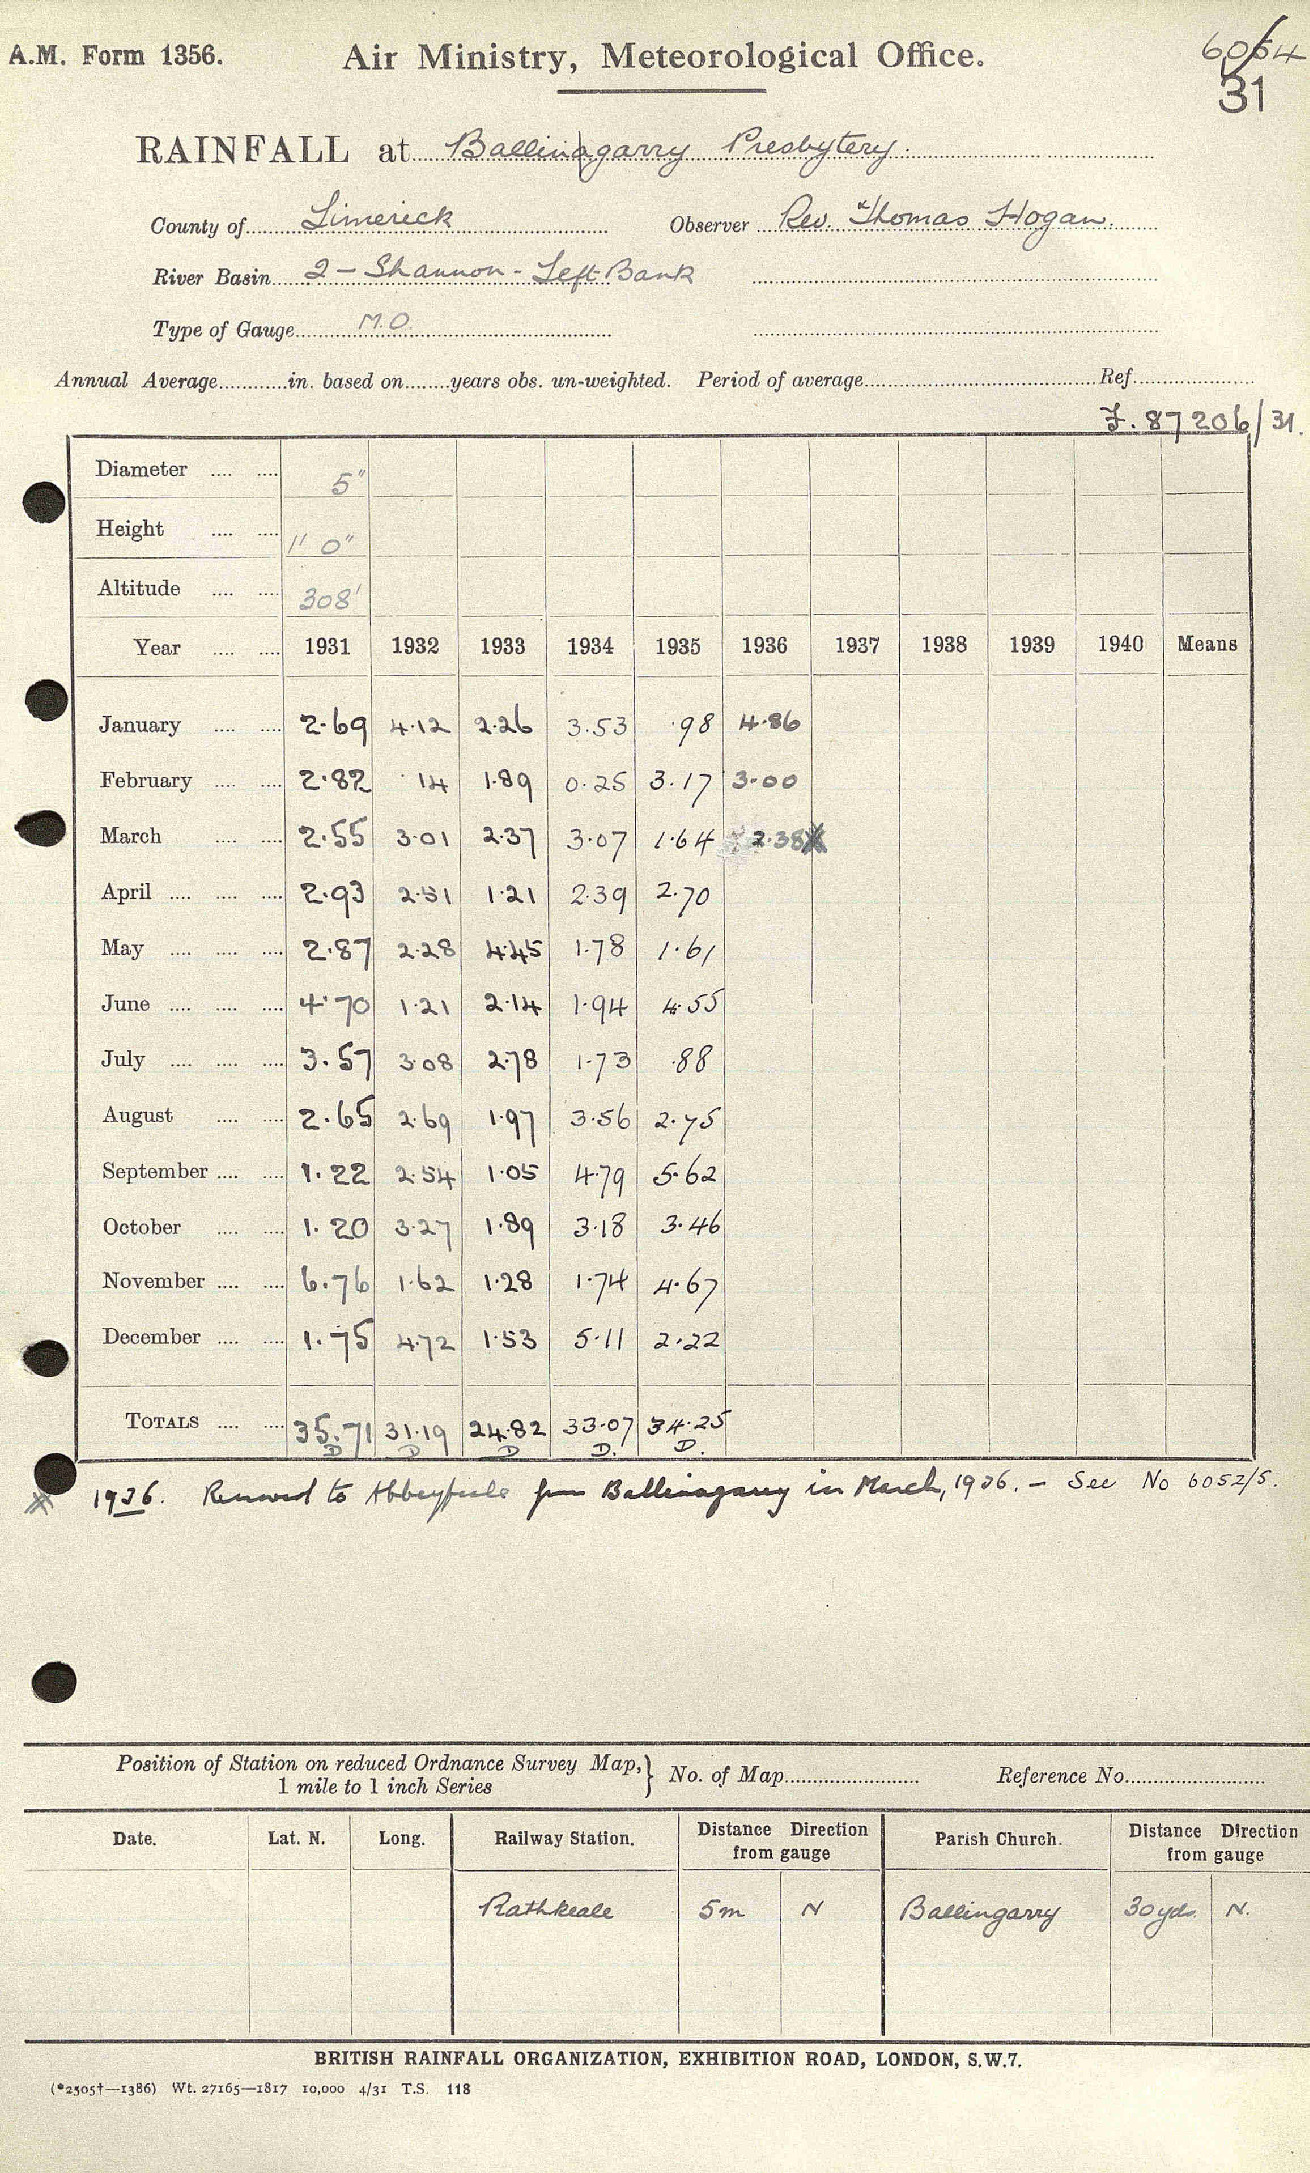 A.M. Form 1356. Air Ministry, Meteorological Office. 6064
31
RAINFALL at Ballinagarry Presbytery.
County of Limerick Observer Rev. Thomas Hogan.
River Basin 2 - Shannon - Left Bank
Type of Gauge M.O.
Annual Average............in. based on........years obs. un-weighted. Period of average............Ref............
F. 87206/31.
Diameter .... .... 5"
Height .... .... 1' 0"
Altitude .... .... 308'
Year .... .... 1931 1932 1933 1934 1935 1936 1937 1938 1939 1940 Means
January .... .... 2.69 4.12 2.26 3.53 .98 4.86
February .... .... 2.82 .14 1.89 0.25 3.17 3.00
March .... .... 2.55 3.01 2.37 3.07 1.64 2.38 X
April .... .... .... 2.93 2.51 1.21 2.39 2.70
May .... .... .... 2.87 2.28 4.45 1.78 1.61
June .... .... .... 4.70 1.21 2.14 1.94 4.55
July .... .... .... 3.57 3.08 2.78 1.73 .88
August .... .... 2.65 2.69 1.97 3.56 2.75
September .... .... 1.22 2.54 1.05 4.79 5.62
October .... .... 1.20 3.27 1.89 3.18 3.46
November .... .... 6.76 1.62 1.28 1.74 4.67
December .... .... 1.75 4.72 1.53 5.11 2.22
TOTALS .... .... 35.71 31.19 24.82 33.07 34.25
D D D D. D.
X 1936. Removed to Abbeyfeale from Ballinagarry in March, 1936. - See No 6052/5.
Position of Station on reduced Ordnance Survey Map, } No. of Map............ Reference No............
1 mile to 1 inch Series
Date. Lat. N. Long. Railway Station. Distance Direction from gauge Parish Church. Distance Direction from gauge
Rathkeale 5m N Ballingarry 30yds. N.
BRITISH RAINFALL ORGANIZATION, EXHIBITION ROAD, LONDON, S.W.7.
(*2505†—1386) Wt. 27165—1817 10,000 4/31 T.S. 118